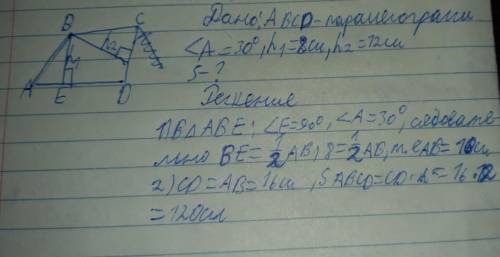 B
C
h1
h2
A
E
D
Дано: ABCD-параллелограмм
<A=30°, h1=8см, h2=12см
S-?
Решение
1) В Δ ABE: <E=90°, <A=30°, следовате
льно BE=1/2AB, 8=1/2AB, т.е AB=16см
2) CD=AB=16см, SABCD=CD·h2=16·12
=120см